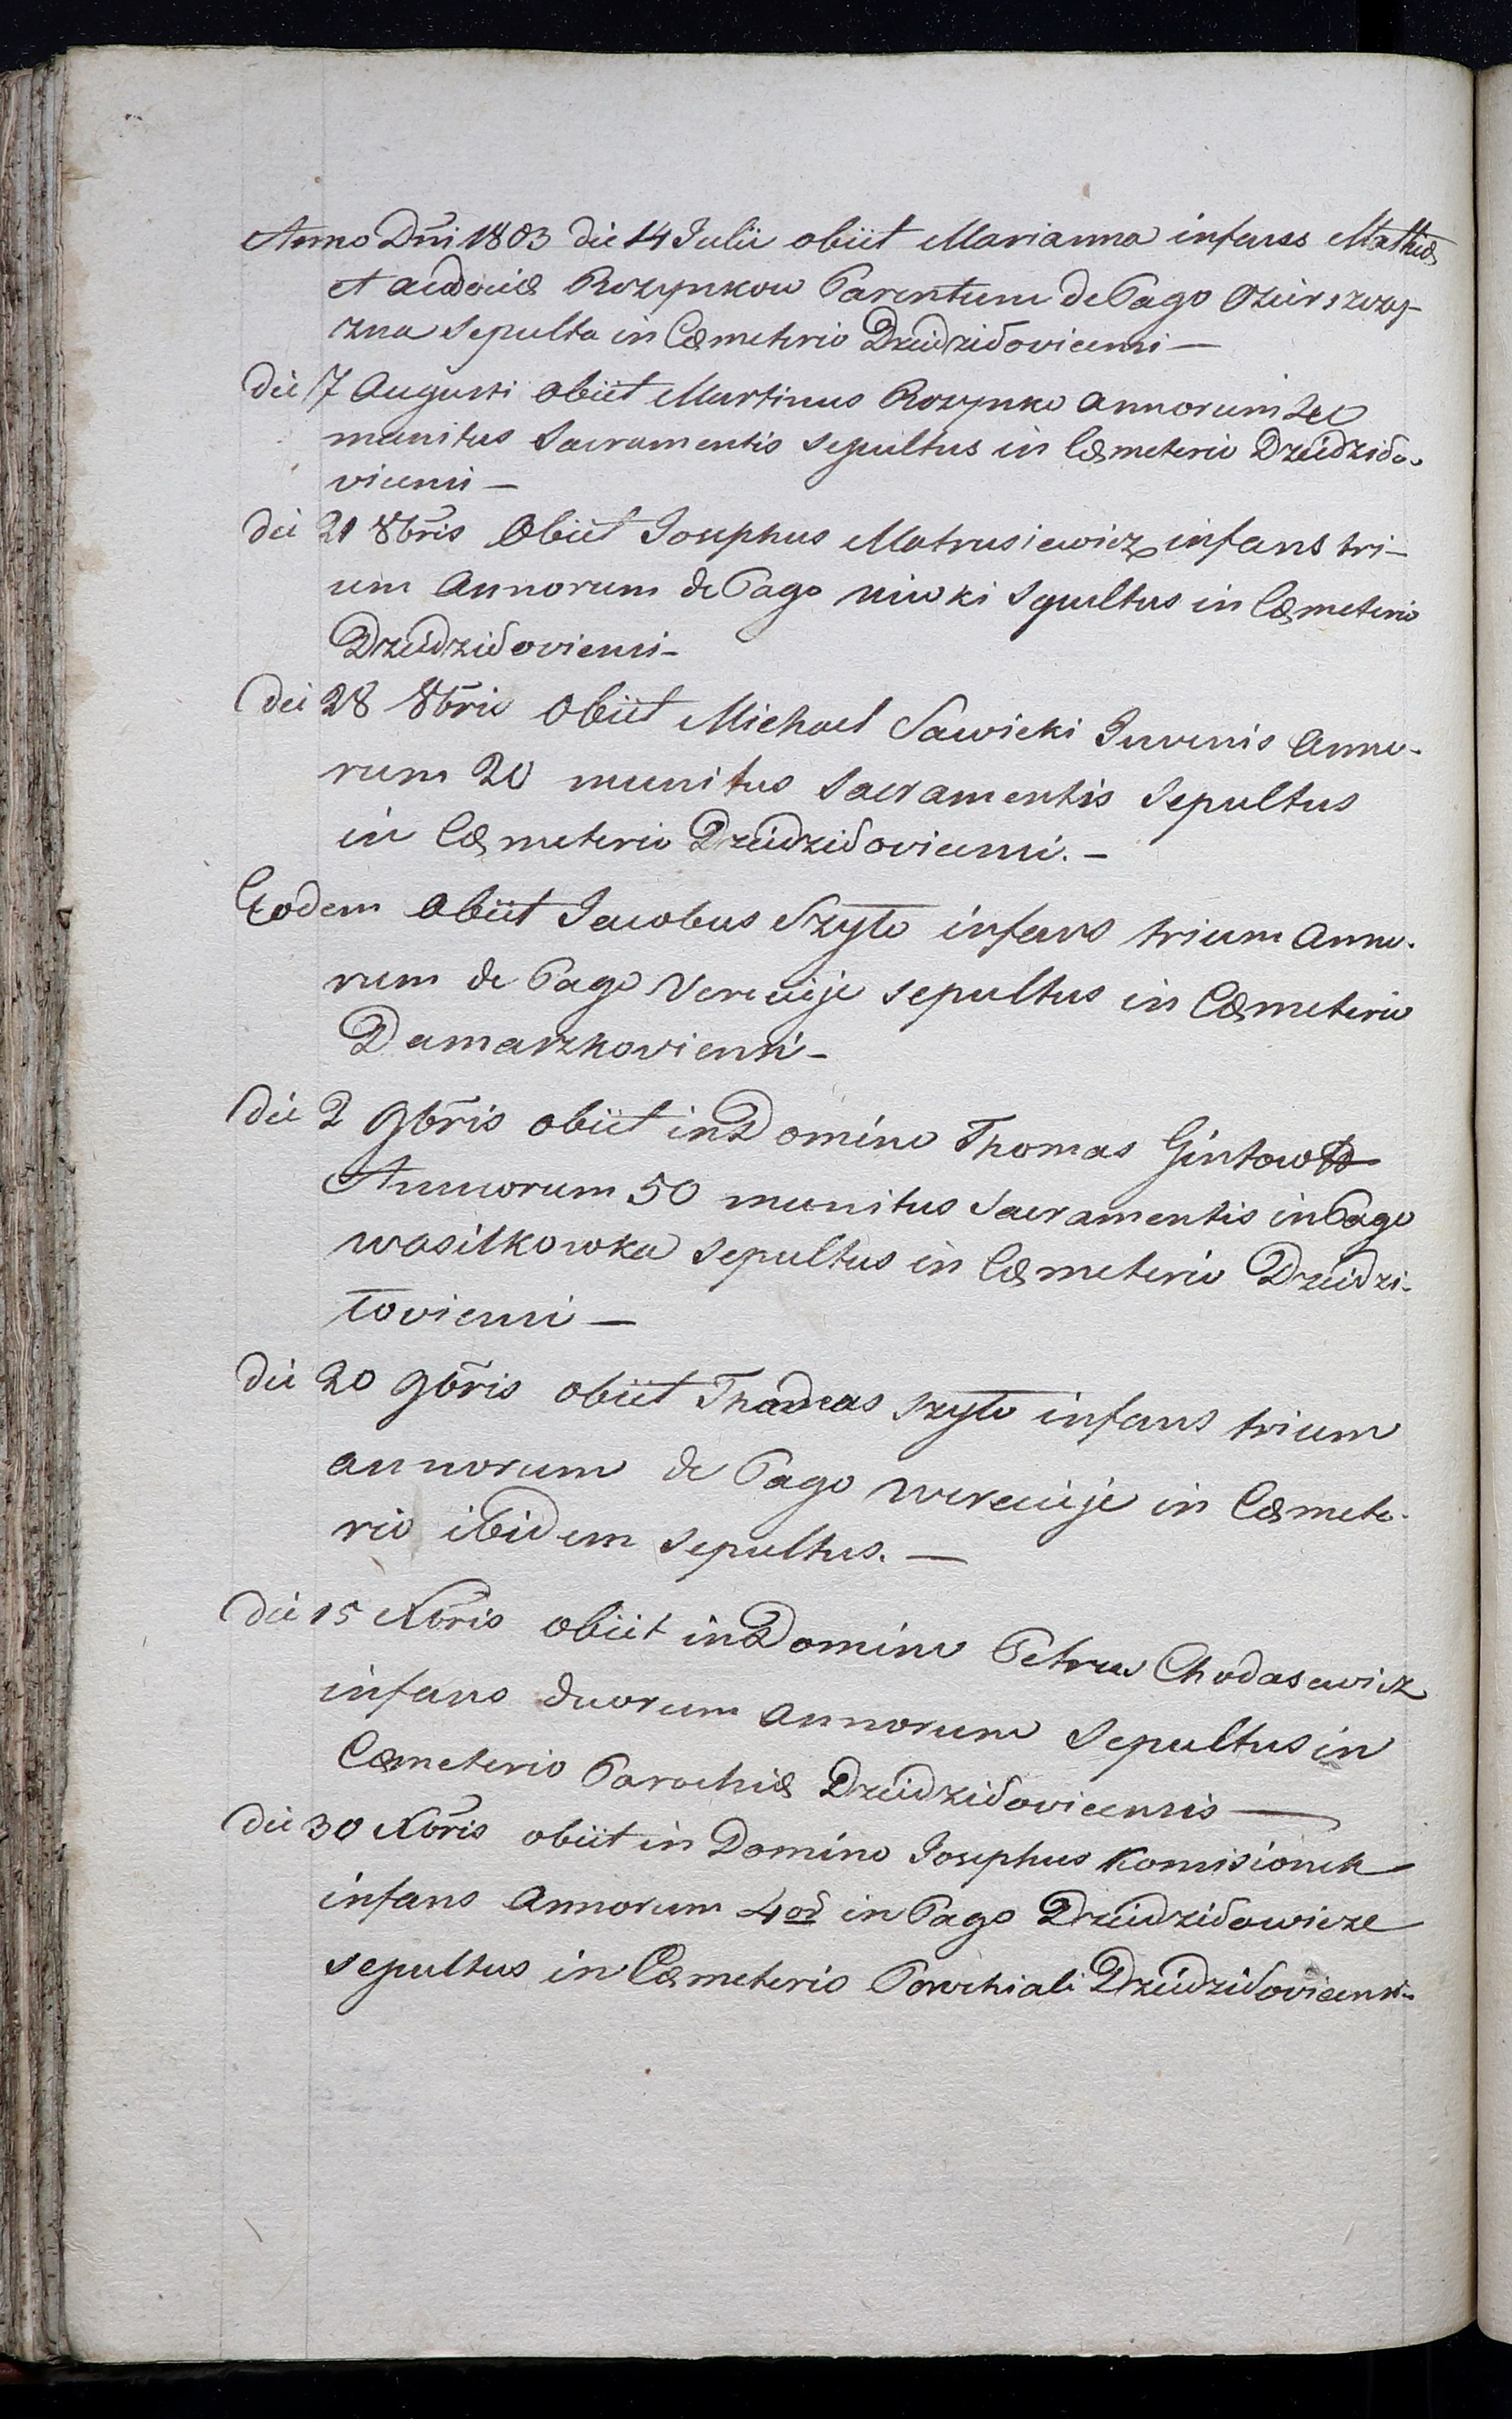 Anno Dñi 1803 die 14 Julii obiit Marianna infans Mathiæ
et audociæ Rozynkow Parentum de Pago
zna Sepulta in Cæmeterio Dzieidzidovicensi —
Die 7 Augusti obiit Martinus Rozynko Annorum
munitus Sacramentis Sepultus in Cæmeterio Dzieidzido-
vicensi —
die 21 8bris Obiit Josephus Matrusiewicz infans tri-
um Annorum de Pago niwki Sepultus in Cæmeterio
Dzieidzidoviensi -
die 28 8bris Obiit Michael Sawicki Juvenis Anno-
rum 20 munitus Sacramentis Sepultus
in Cæmeterio Dzieidzidovicensi. -
Eodem Obiit Jacobus Szyto infans trium Anno-
rum de Pago Vereije sepultus in Cæmeterio
Damarzkoviensi -
Die 2 9bris obiit in Domino Thomas Gintowtt
Annorum 50 munitus Sacramentis in Pago
wasilkowka Sepultus in Cæmeterio Dzieidzi-
toviensi —
die 20 9bris obiit Thadeus Szyto infans trium
annorum de Pago wereije in Cæmete-
rio ibidem Sepultus. —
Die 15 Xbris obiit in Domino Petrus Chodasewicz
infans duorum annorum Sepultus in
Cæmeterio Parochiæ Dzieidzidovicensis —
Die 30 Xbris obiit in Domino Josephus Komisionek
infans Annorum 4or in Pago Dzieidzidowicze
sepultus in Cæmeterio Parochiali Dzieidzidovicensi -